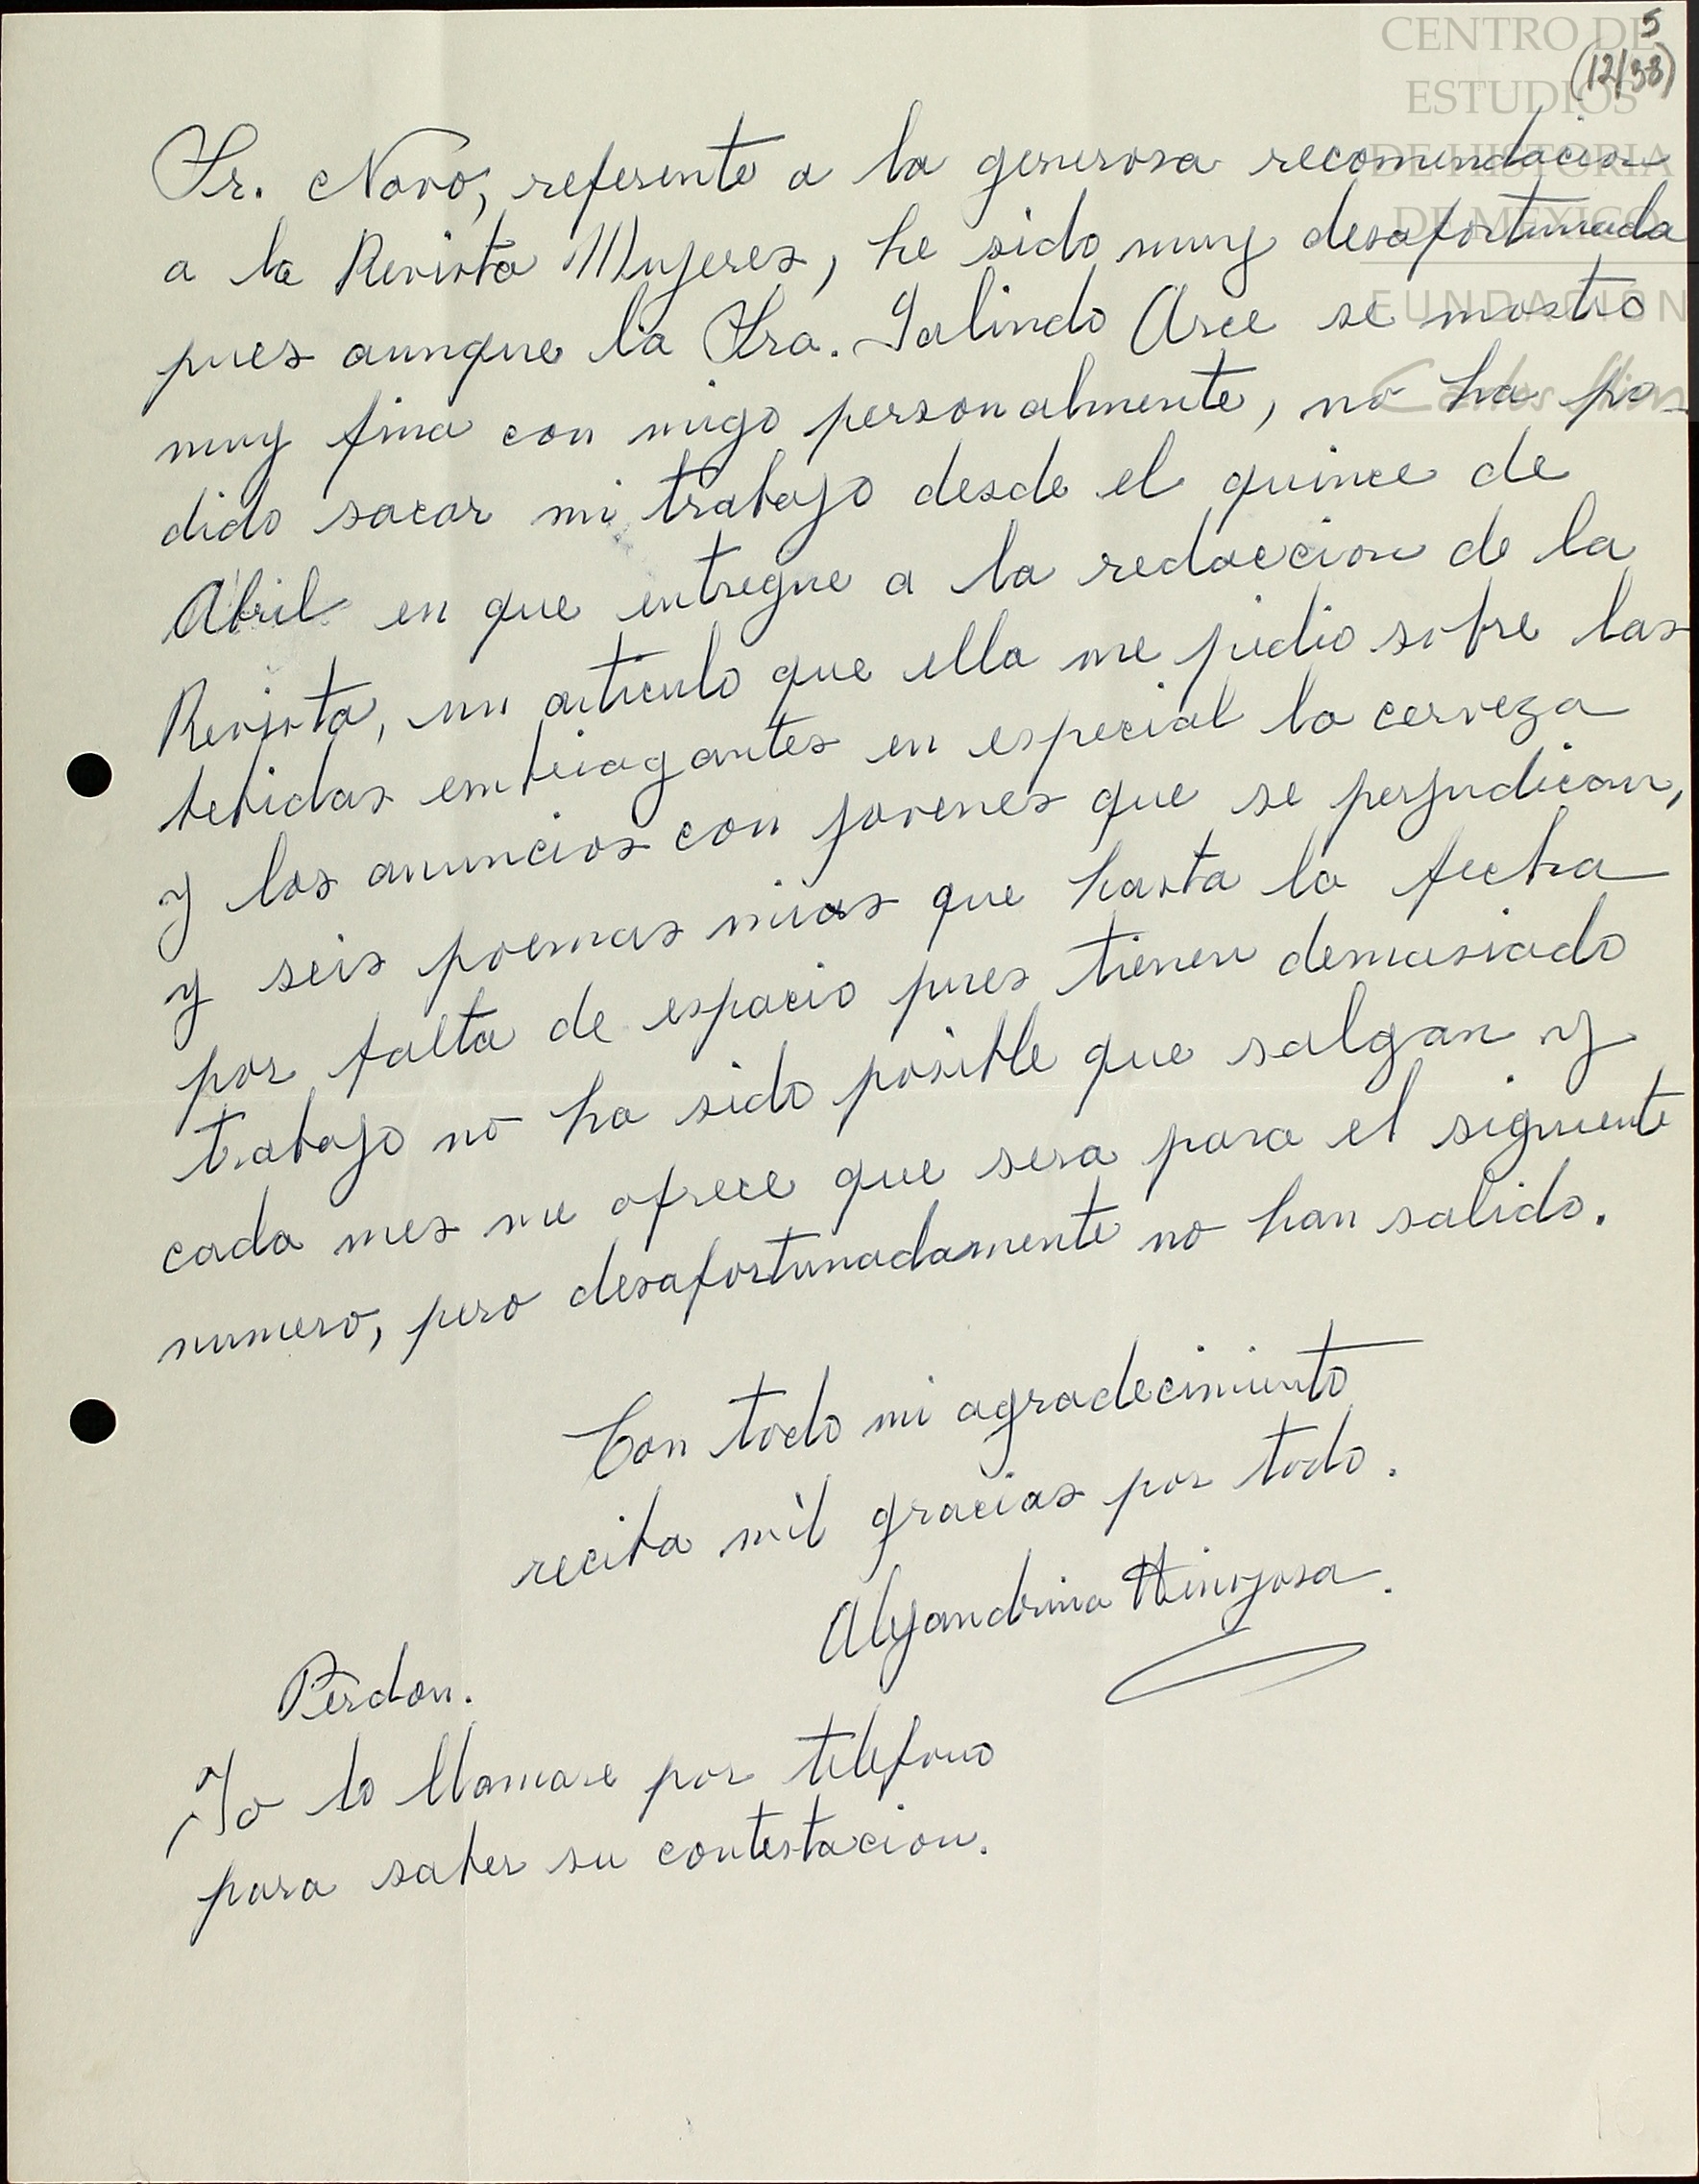 5
(12/38)
CENTRO DE
ESTUDIOS
DE HISTORIA
DE MEXICO
FUNDACIÓN
Carlos Slim
Sr. Novo, referente a la generosa recomendacion
a la Revista Mujeres, he sido muy desafortunada
pues aunque la Sra. Galindo Arce se mostro
muy fina con migo personalmente, no ha po-
dido sacar mi trabajo desde el quince de
Abril en que entregue a la redaccion de la
Revista, un articulo que ella me pidio sobre las
bebidas embriagantes en especial la cerveza
y los anuncios con jovenes que se perjudican,
y seis poemas mias que hasta la fecha
por falta de espacio pues tienen demasiado
trabajo no ha sido posible que salgan y
cada mes me ofrece que sera para el siguiente
numero, pero desafortunadamente no han salido.
Con todo mi agradecimiento
reciba mil gracias por todo.
Alejandrina Hinojosa.
Perdon.
Yo lo llamare por telefono
para saber su contestacion.